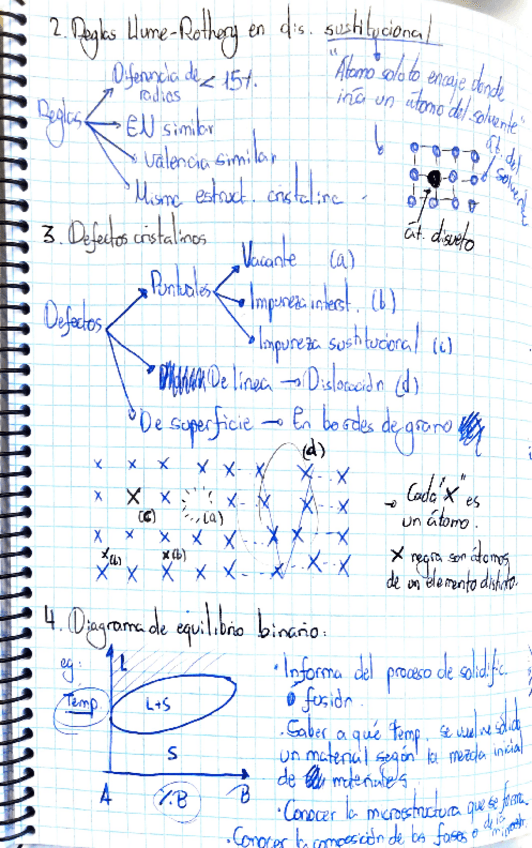 2. Reglas Hume-Rothery en dis. sustitucional
"Átomo soluto encaje donde
iría un átomo del solvente"
Reglas
Diferencia de radios < 15%
EN similar
Valencia similar
Misma estruct. cristalina
át. del solvente
át. disuelto
3. Defectos cristalinos
Defectos
Puntuales
Vacante (a)
Impureza interst. (b)
Impureza sustitucional (c)
De línea → Dislocación (d)
De superficie → En bordes de grano
(d)
(c)
(a)
(b)
(b)
→ Cada "X" es
un átomo.
X negra son átomos
de un elemento distinto.
4. Diagrama de equilibrio binario:
eg:
Temp
L
L+S
S
A
%B
B
· Informa del proceso de solidific.
o fusión.
· Saber a qué Temp. se vuelve sólido
un material según la mezcla inicial
de materiales
· Conocer la microestructura que se forma
· Conocer la composición de las fases o de la microestr.